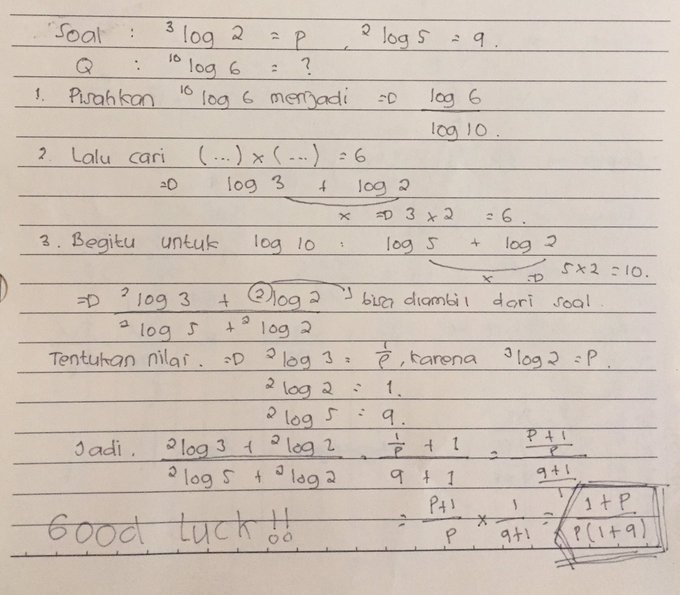 Soal : ³log 2 = p , ²log 5 = q.
Q : ¹⁰log 6 = ?
1. Pisahkan ¹⁰log 6 menjadi => log 6 / log 10.
2. Lalu cari (...) x (...) = 6
=> log 3 + log 2
x => 3 x 2 = 6.
3. Begitu untuk log 10 : log 5 + log 2
x => 5x2 = 10.
=> (²log 3 + ②log 2) / (²log 5 + ²log 2) bisa diambil dari soal.
Tentukan nilai. => ²log 3 = 1/p, karena ³log 2 = P.
²log 2 = 1.
²log 5 = q.
Jadi. (²log 3 + ²log 2) / (²log 5 + ²log 2) = (1/p + 1) / (q + 1) = ((p+1)/p) / ((q+1)/1)
Good luck!! = (p+1)/p x 1/(q+1) = (1+p) / (p(1+q))